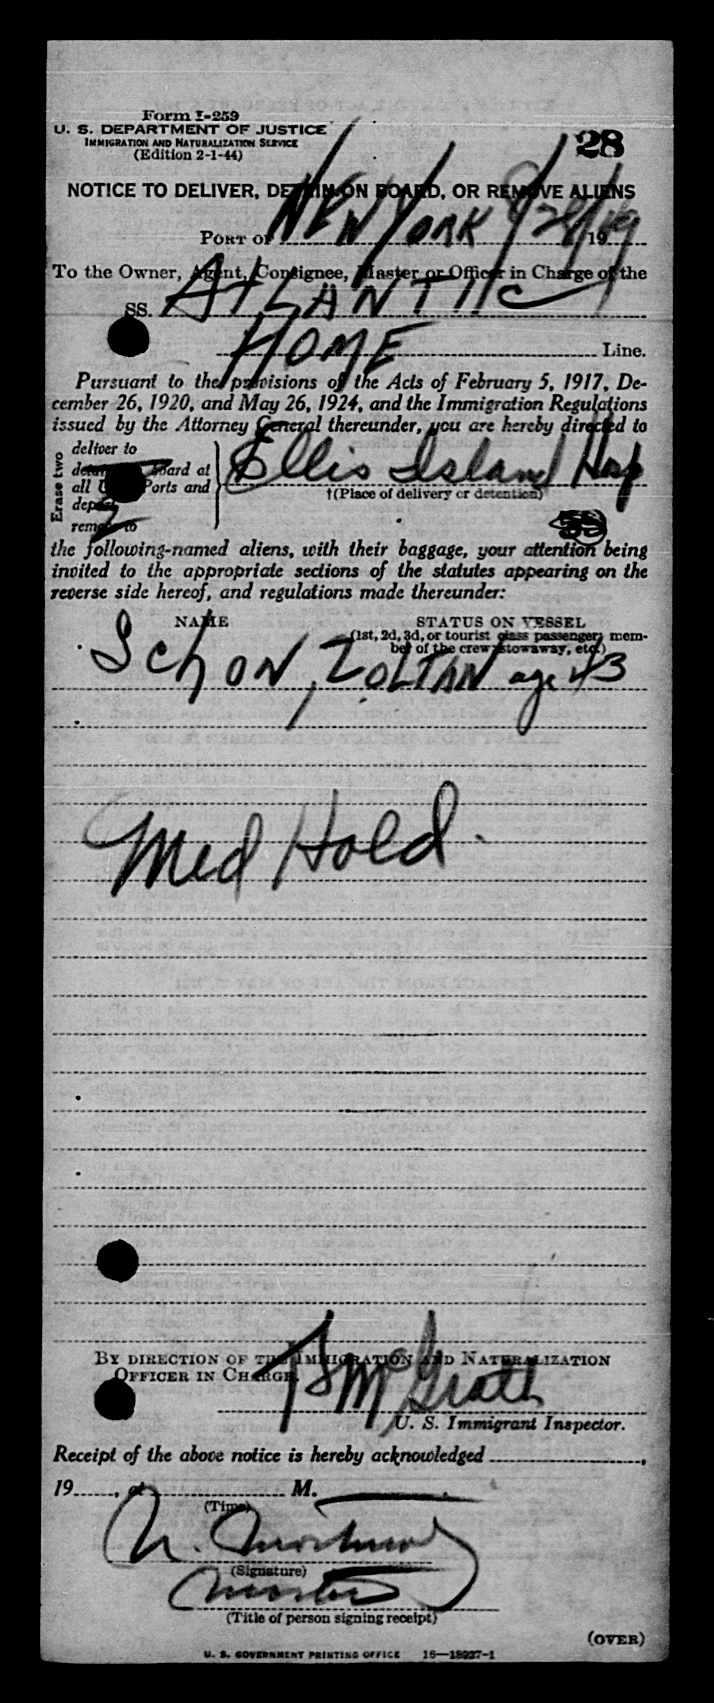 Form I-259
U. S. DEPARTMENT OF JUSTICE
IMMIGRATION AND NATURALIZATION SERVICE
(Edition 2-1-44)
28
NOTICE TO DELIVER, DETAIN ON BOARD, OR REMOVE ALIENS
PORT OF NEW YORK 8/28/1949
To the Owner, Agent, Consignee, Master or Officer in Charge of the
SS. ATLANTIC
HOME Line.
Pursuant to the provisions of the Acts of February 5, 1917, De-
cember 26, 1920, and May 26, 1924, and the Immigration Regulations
issued by the Attorney General thereunder, you are hereby directed to
Erase two
deliver to
detain on board at
all U Ports and
deport
remove to
Ellis Island Hosp
†(Place of delivery or detention)
the following-named aliens, with their baggage, your attention being
invited to the appropriate sections of the statutes appearing on the
reverse side hereof, and regulations made thereunder:
NAME
STATUS ON VESSEL
(1st, 2d, 3d, or tourist class passenger, mem-
ber of the crew, stowaway, etc.)
SCHON, ZOLTAN age 43
Med Hold.
BY DIRECTION OF THE IMMIGRATION AND NATURALIZATION
OFFICER IN CHARGE.
McGrath
U. S. Immigrant Inspector.
Receipt of the above notice is hereby acknowledged
19 , at M.
(Time)
(Signature)
Master
(Title of person signing receipt)
(OVER)
U. S. GOVERNMENT PRINTING OFFICE 16—18227-1